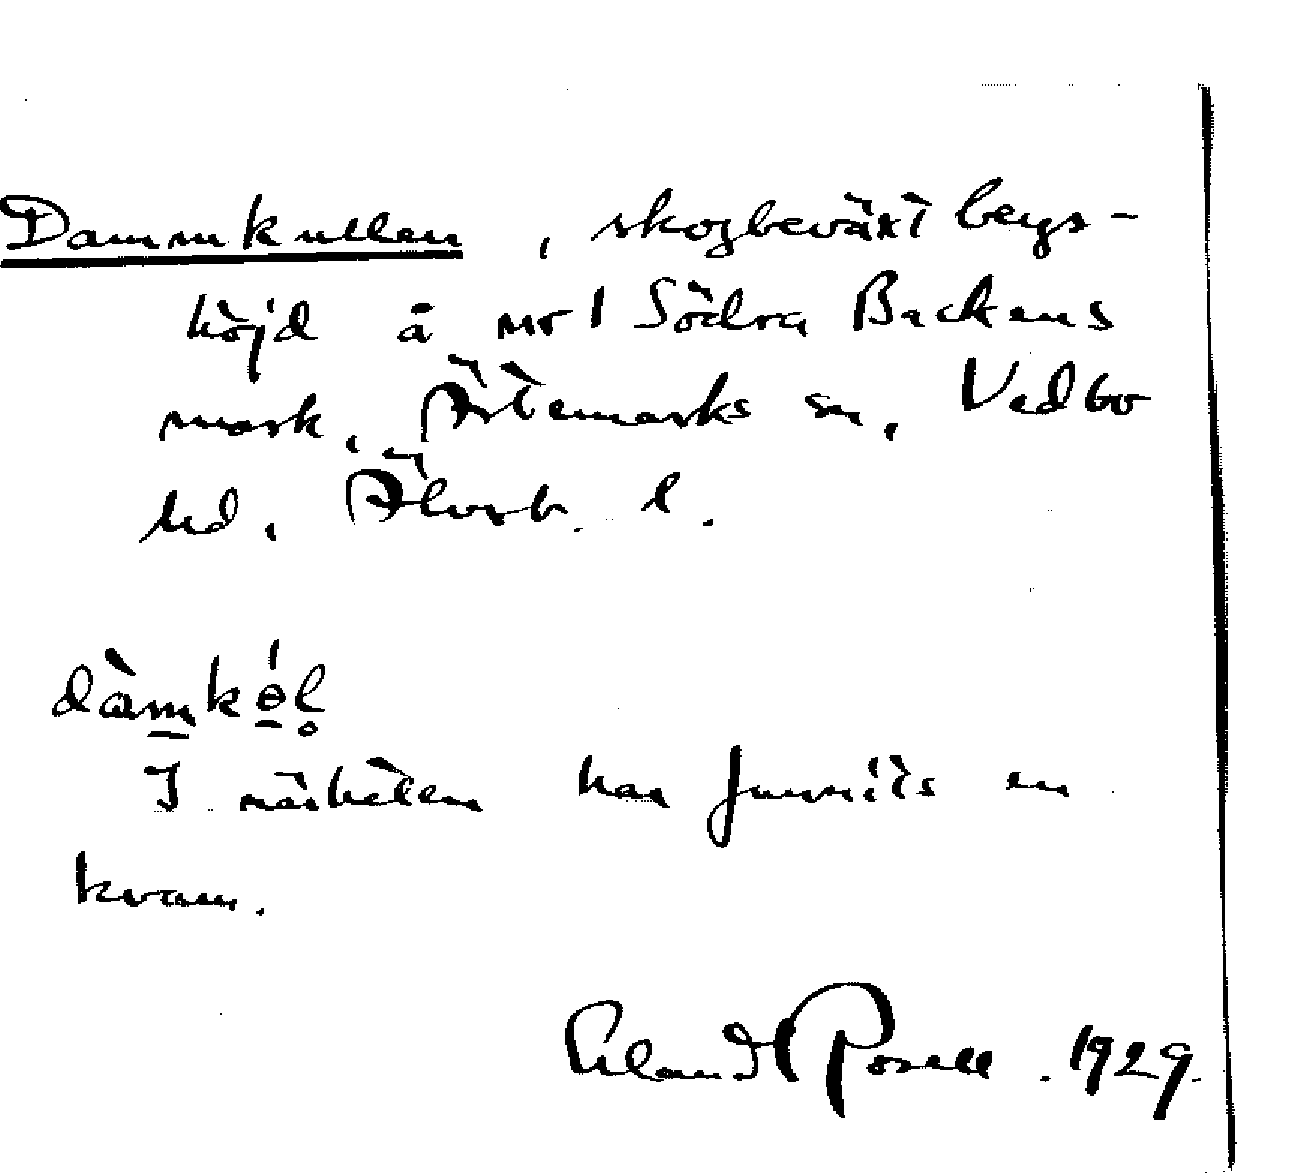 Dammkullen, skogbeväxt bergs-
höjd å nr 1 Södra Backens
mark, Ärtemarks sn, Vedbo
hd, Älvsb. l.
dàmkө́l̥
I närheten har funnits en
kvarn.
Erland Rosell. 1929.